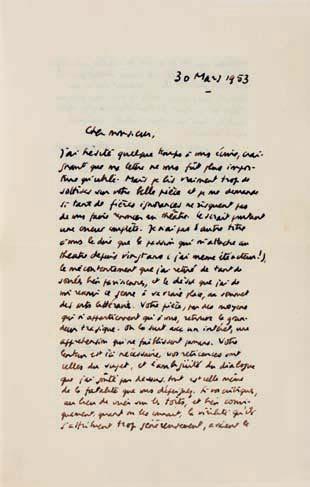 30 Mars 1953
Cher monsieur,
J'ai hésité quelque temps à vous écrire, crai-
gnant que ma lettre ne vous fût plus impor-
tune qu'utile. Mais je lis vraiment trop de
sottises sur votre belle pièce et je me demande
si tant de fières ignorances ne risquent pas
de vous faire renoncer au théâtre. Ce serait pourtant
une erreur complète. Je n'ai pas d'autre titre
à vous le dire que la passion qui m'attache au
théâtre depuis vingt ans (j'ai même été acteur!),
le mécontentement que j'ai retiré de tant de
soirées bien parisiennes, et le désir que j'ai de
voir ce genre à sa vraie place, au sommet
des arts littéraires. Votre pièce, par des moyens
qui n'appartiennent qu'à vous, retrouve la gran-
deur tragique. On la suit avec un intérêt, une
appréhension qui ne faiblissent jamais. Votre
lenteur est ici nécessaire, vos réticences sont
celles du sujet, et l'ambiguïté du dialogue
que j'ai goûté par dessus tout est celle même
de la fatalité que vous
au lieu de crier sur les toits, et bien comi-
quement, quand on les connaît, la virilité qu'ils
s'attribuent trop généreusement, avaient le